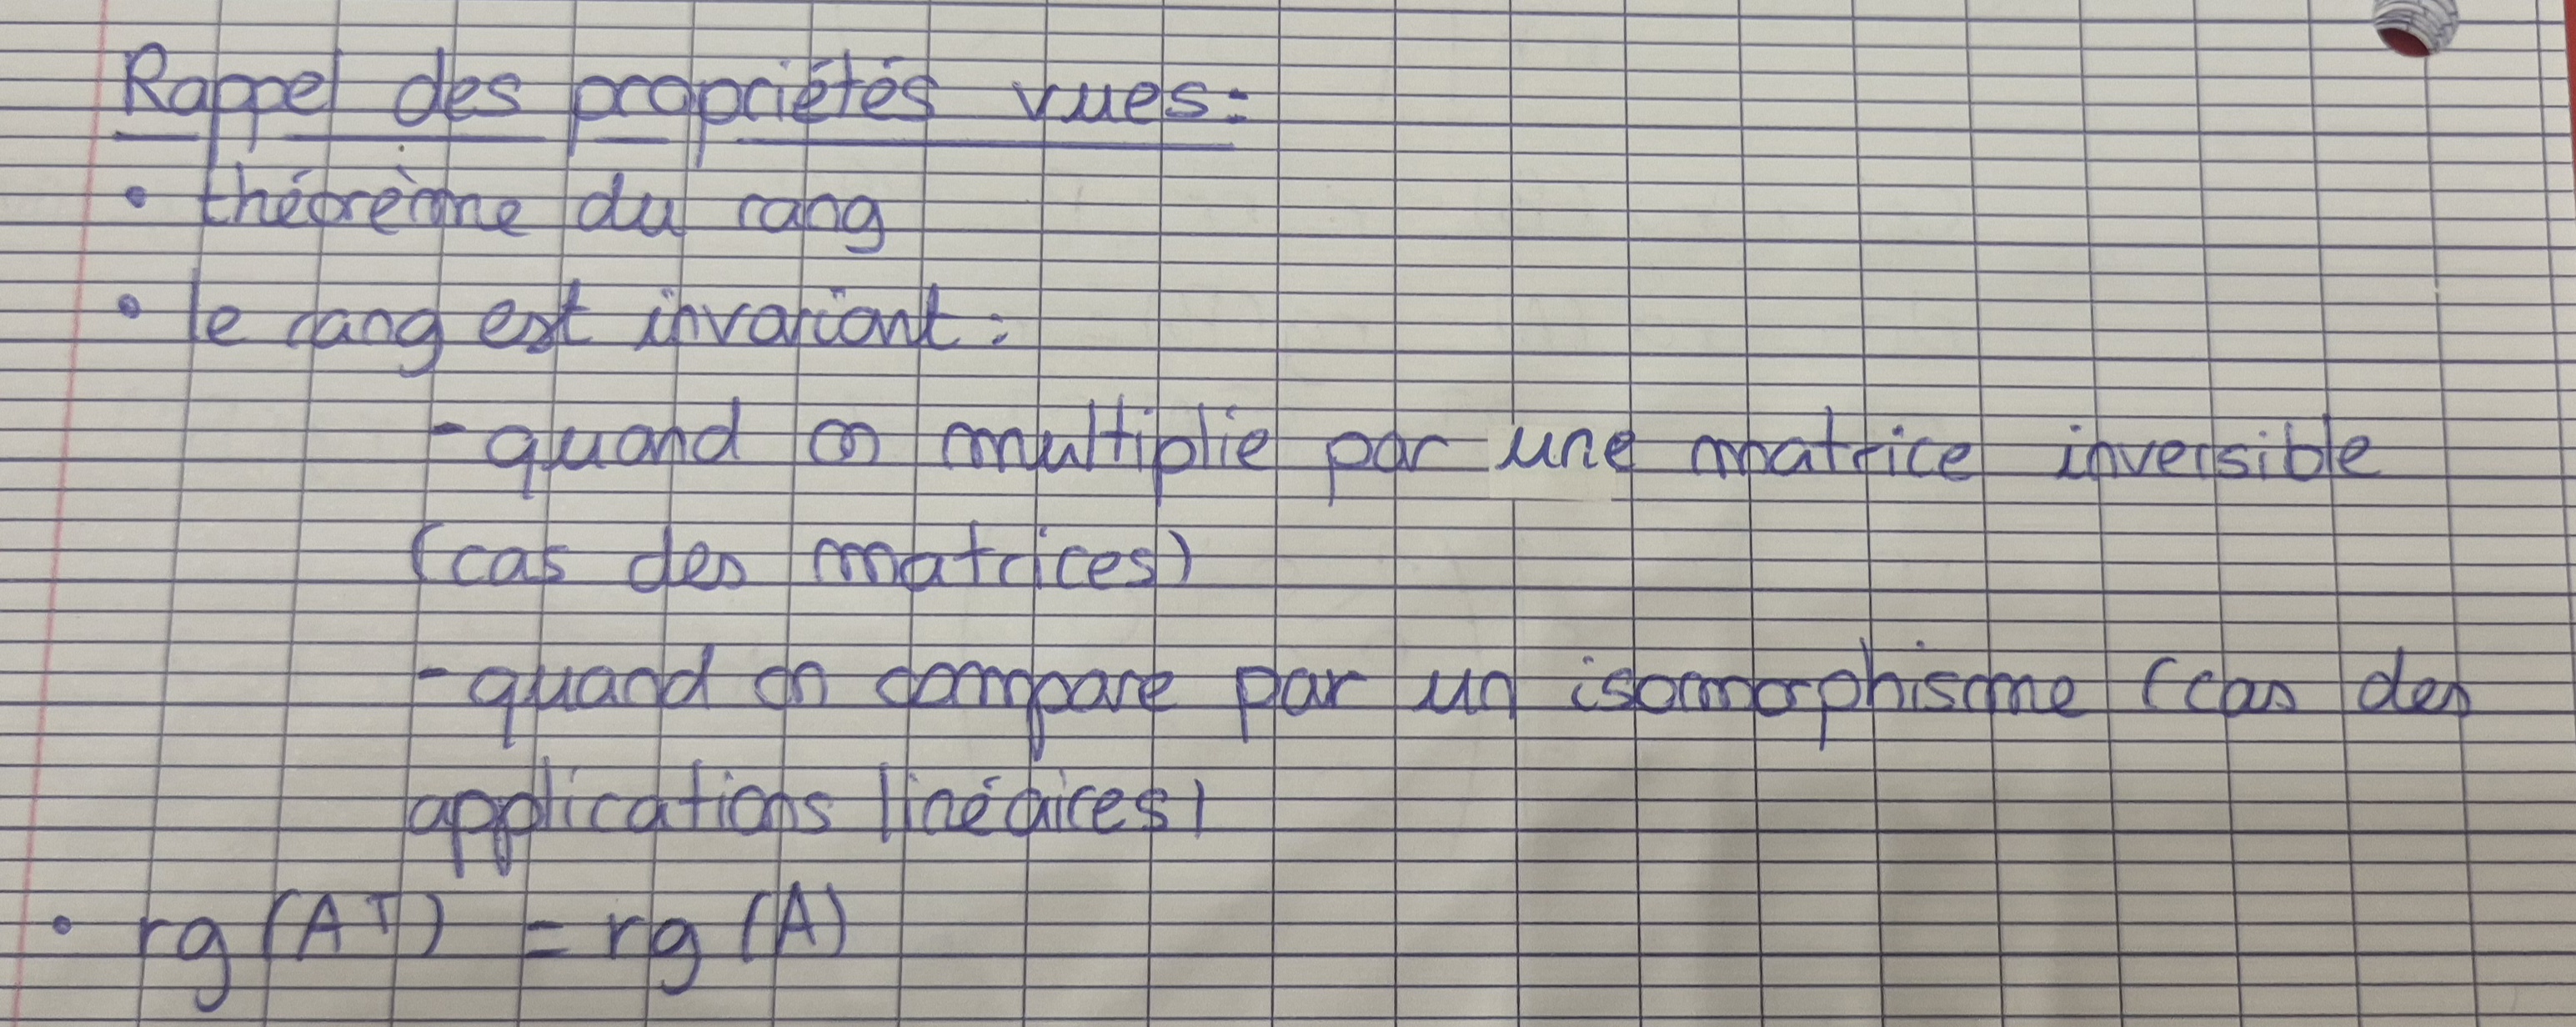 Rappel des propriétés vues:
• théorème du rang
• le rang est invariant:
- quand on multiplie par une matrice inversible
(cas des matrices)
- quand on compare par un isomorphisme (cas des
applications linéaires)
• rg (A^T) = rg (A)